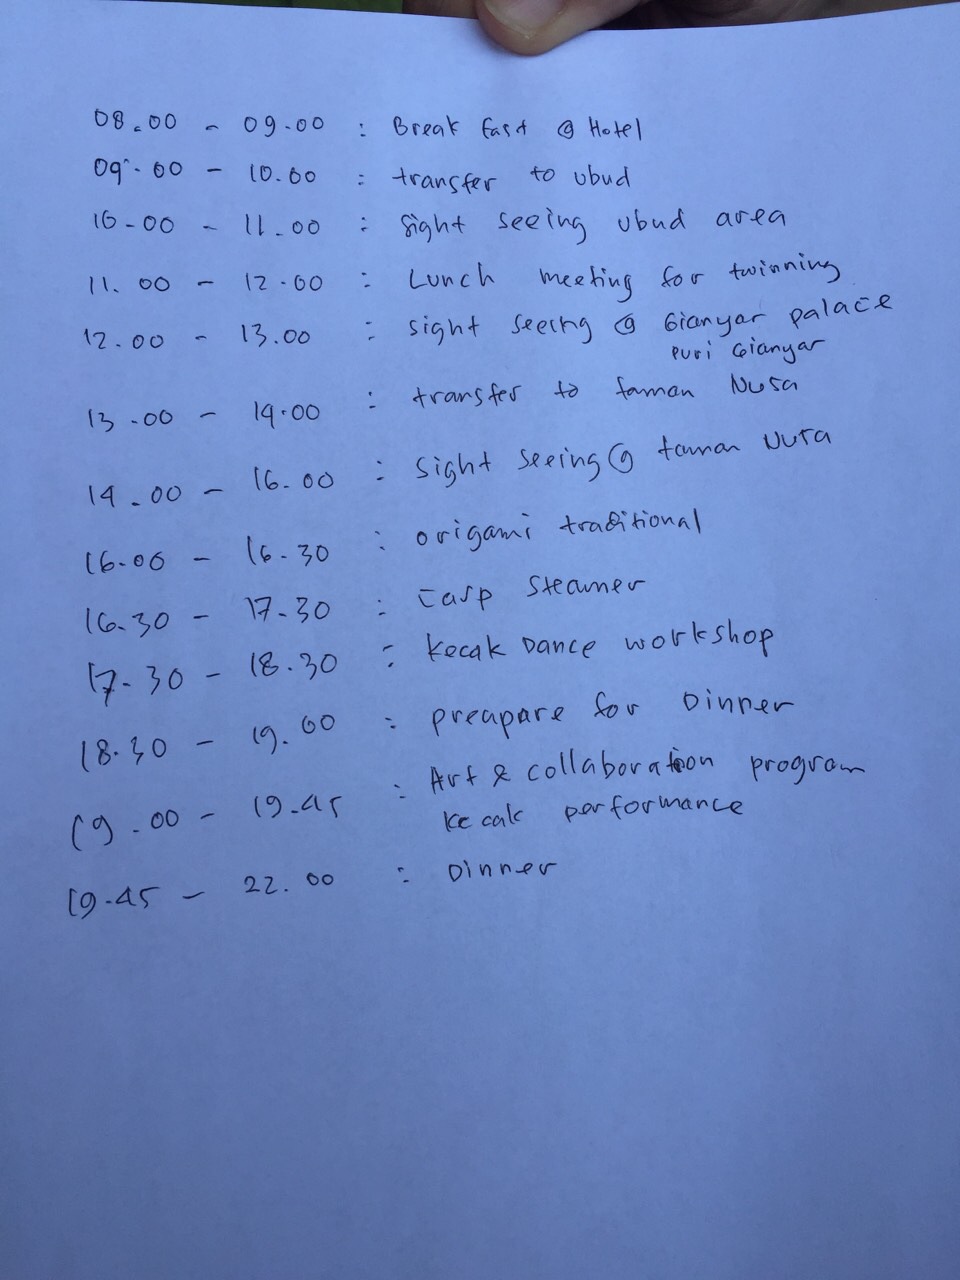 08.00 - 09.00 : Break fast @ Hotel
09.00 - 10.00 : transfer to ubud
10.00 - 11.00 : sight seeing ubud area
11.00 - 12.00 : Lunch meeting for twinning
12.00 - 13.00 : sight seeing @ Gianyar palace
puri Gianyar
13.00 - 14.00 : transfer to taman Nusa
14.00 - 16.00 : sight seeing @ taman Nusa
16.00 - 16.30 : origami traditional
16.30 - 17.30 : steamer
17.30 - 18.30 : kecak Dance workshop
18.30 - 19.00 : preapare for Dinner
19.00 - 19.45 : Art & collaboration program
kecak performance
19.45 - 22.00 : Dinner